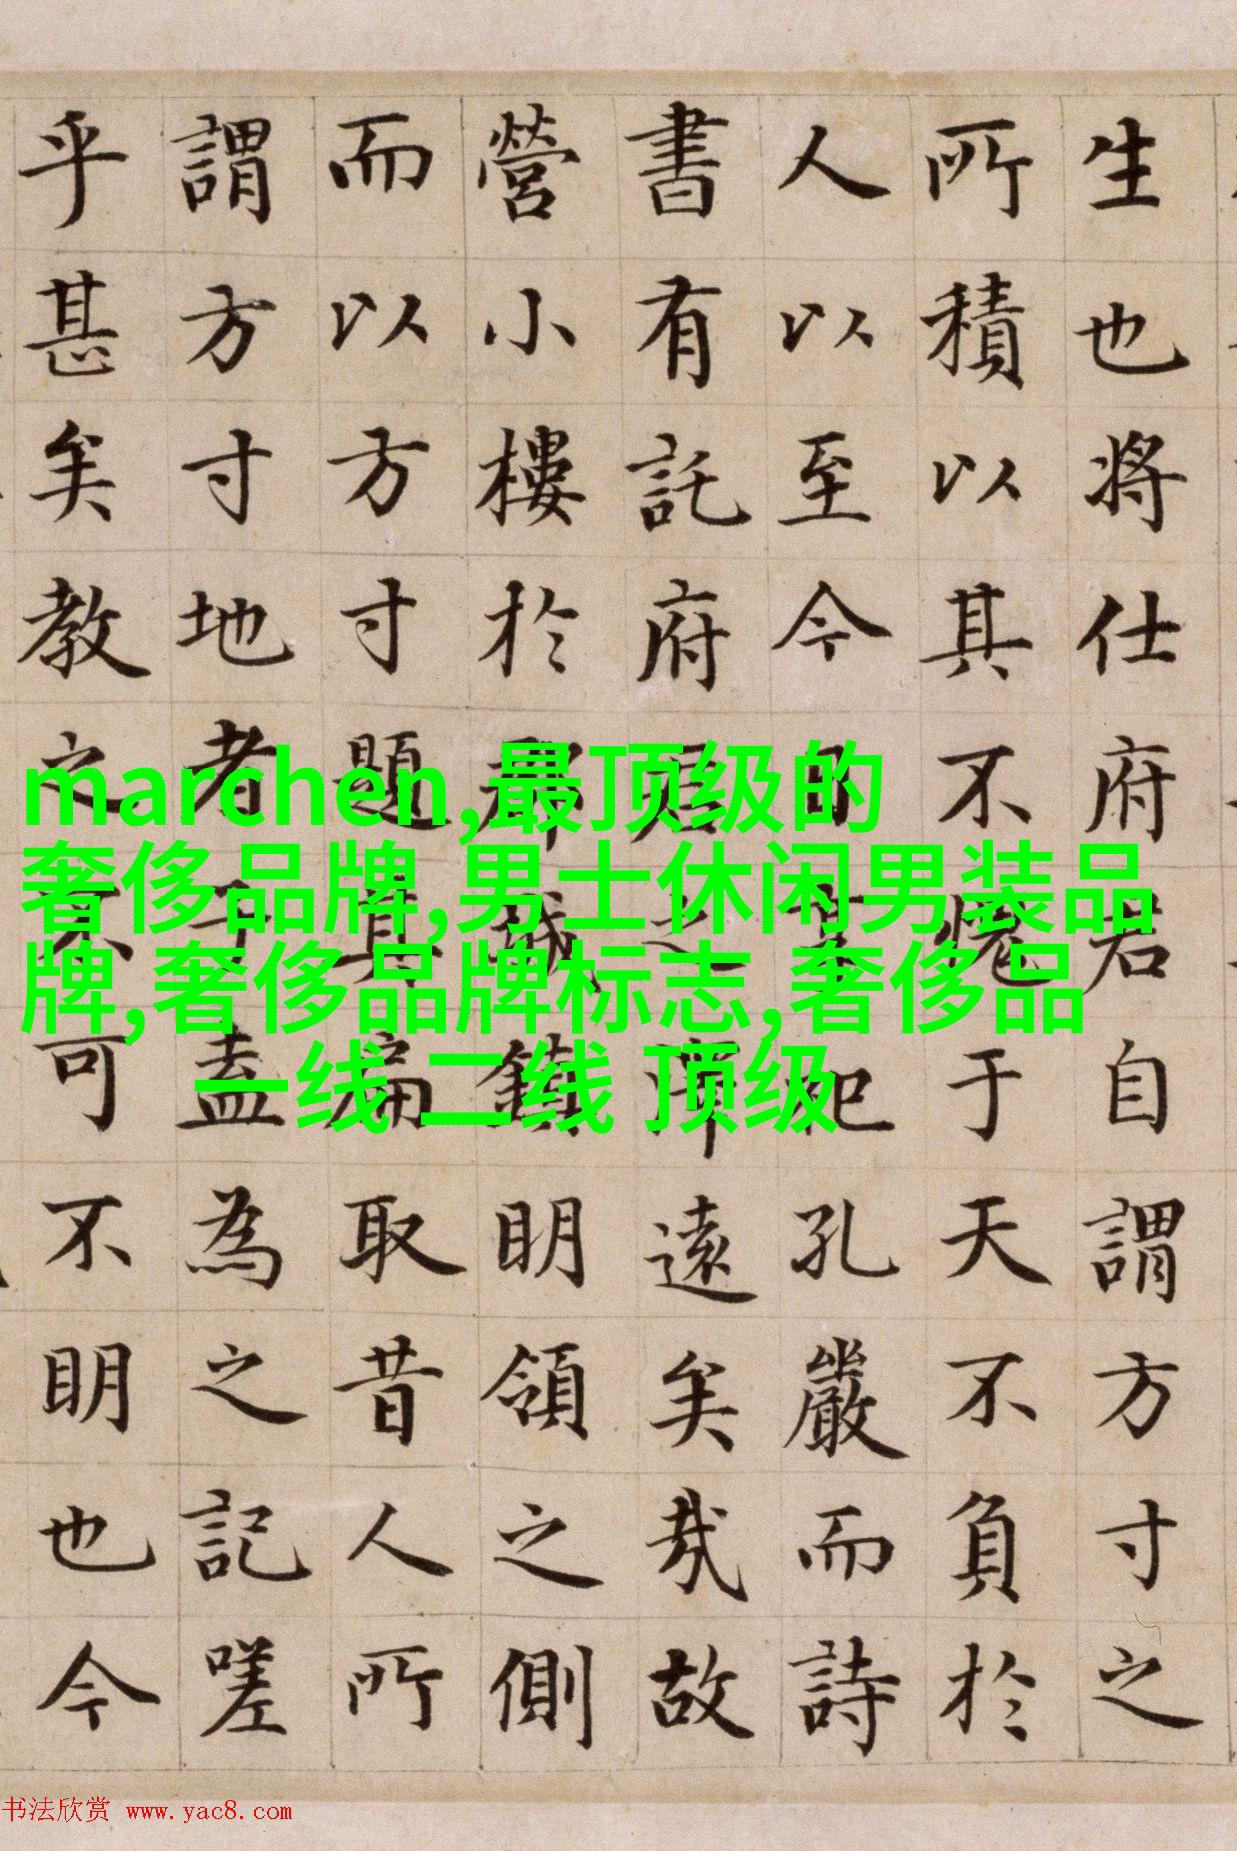 生也將仕府君自謂方寸之
所積以其不愧于天不負於
人以至今日祀孔嚴而詩
書有託府君之澤遠矣哉故
營小樓於郡城鎮明領之側
而以方寸題其扁取昔人所
謂方寸地者子盍為之記嗟
乎甚矣教之不可不明也今
marchen,最顶级的
奢侈品牌,男士休闲男装品
牌,奢侈品牌标志,奢侈品
一线 二线 顶级
书法欣赏 www.yac8.com